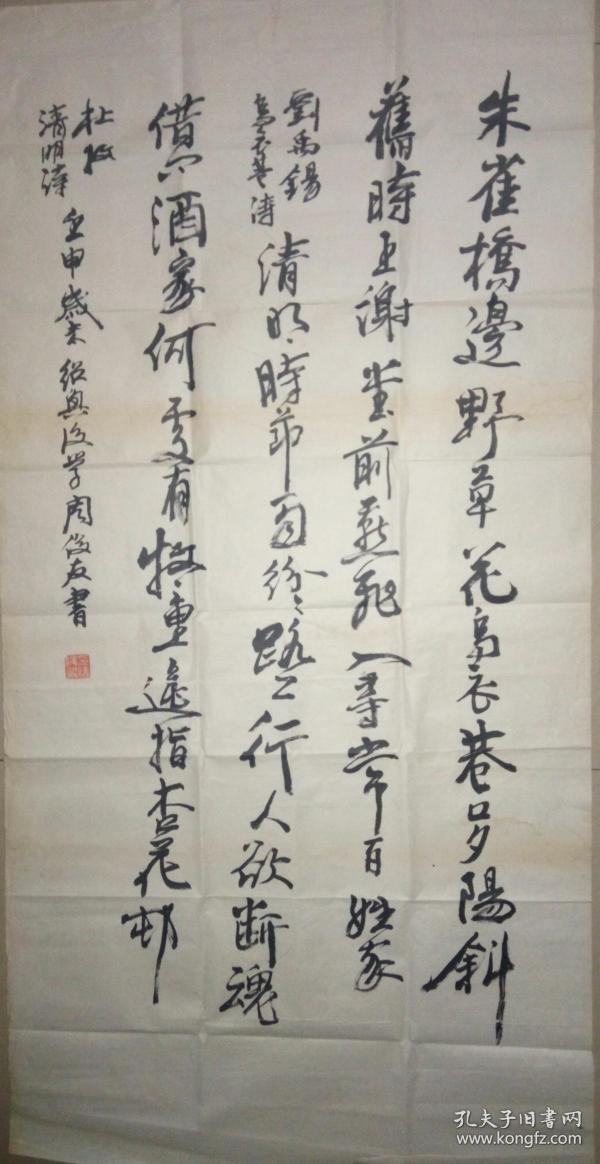 朱雀橋邊野草花烏衣巷口夕陽斜
舊時王謝堂前燕飛入尋常百姓家
劉禹錫
烏衣巷詩
清明時節雨紛〻路上行人欲断魂
借问酒家何處有牧童遥指杏花邨
杜牧
清明詩
壬申歲末紹興後学周俊友書
孔夫子旧書网
www.kongfz.com